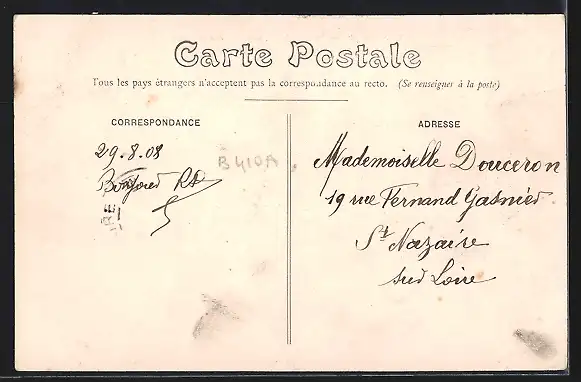 Carte Postale
Tous les pays étrangers n'acceptent pas la correspondance au recto. (Se renseigner à la poste)
CORRESPONDANCE
29.8.08
B410A
ADRESSE
Mademoiselle Douceron
19 rue Fernand Gasnier
St Nazaire
sud Loire